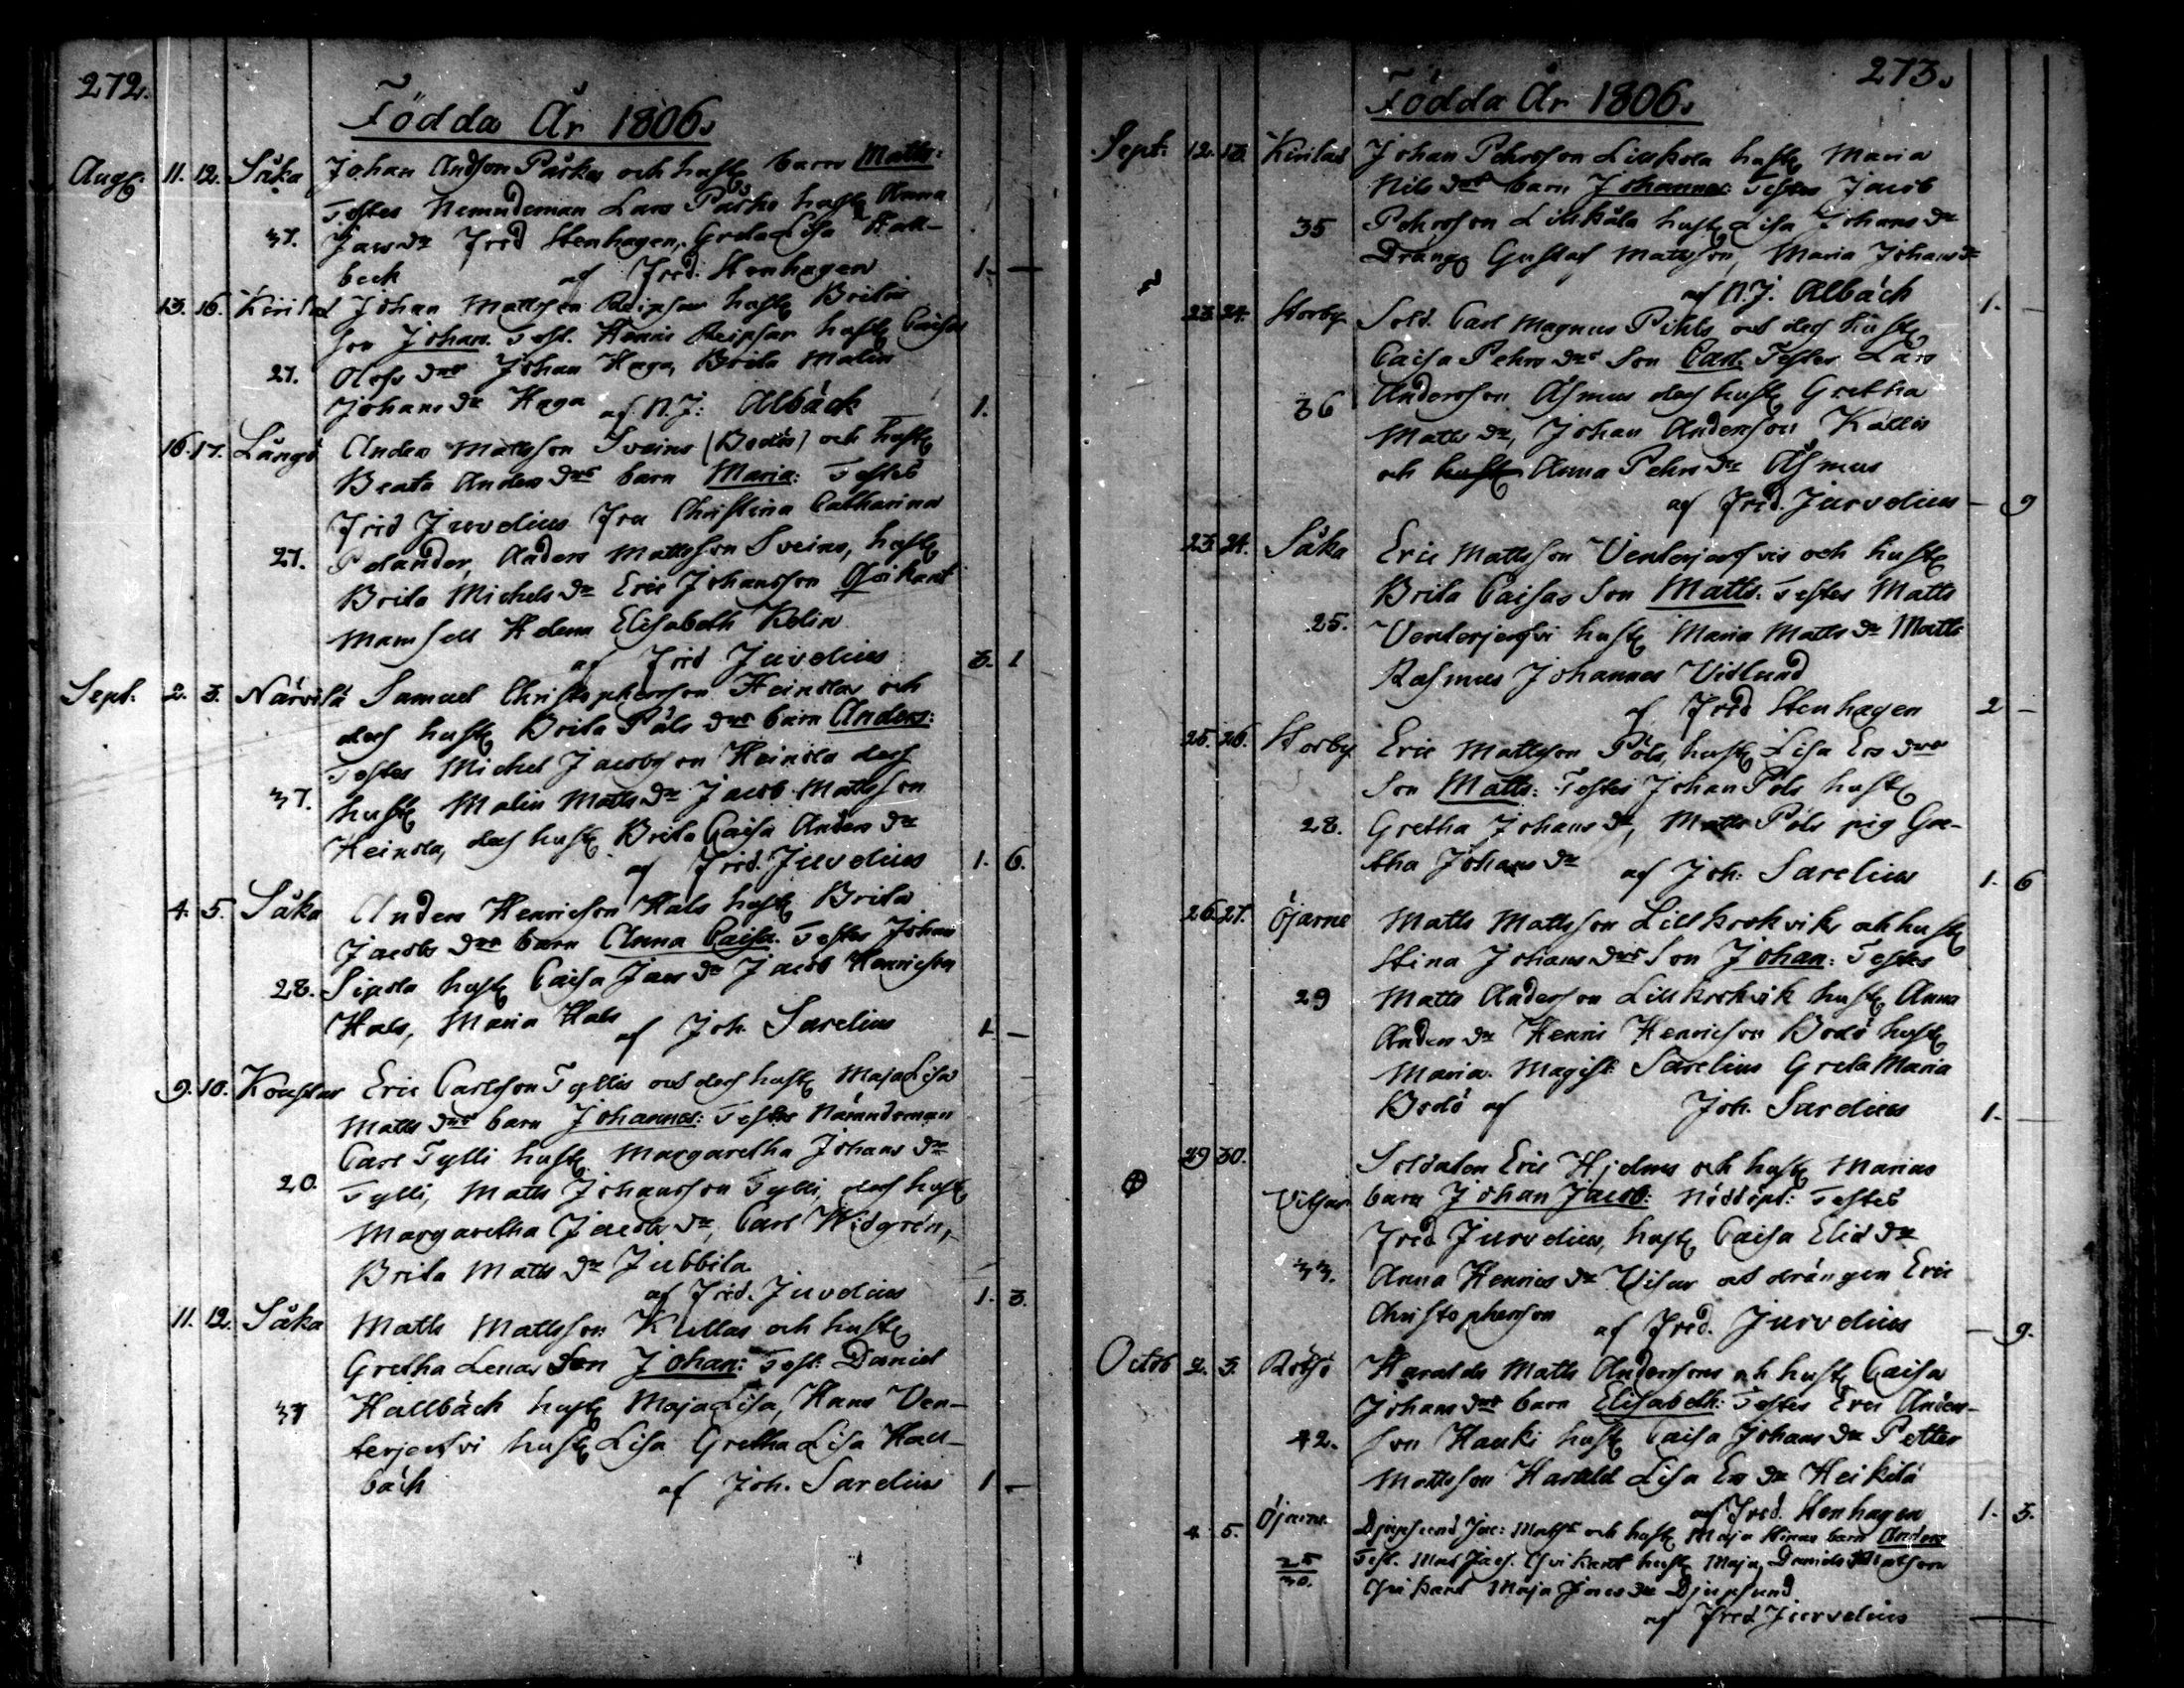 272.
Födda År 1806.
Aug: 11. 12. Såka Johan Andsson Påskas och hust: barn Matts:
Testes Nemndeman Lars Påsko hust: Anna
37. Jacs dr Fred Stenhagen, Greta Lisa Hall-
beck af Fred: Stenhagen 1. —
13. 16. Kirilax Johan Mattsson Reipsar hust: Britas
son Johan. Test. Henric Reipsar hust: Caisa
27. Olofs dr Johan Haga, Brita Malin
Johans dr Haga af N. J: Albäck 1.
16. 17. Långö Anders Mattsson Sveins (Bodös) och hust:
Beata Anders drs barn Maria: Testes
Fred Juvelius Fru Christina Catharina
27. Polander, Anders Mattsson Sveins, hust:
Brita Michels dr Eric Johansson Qvikant
Mamsell Helena Elisabeth Relin
af Fred Juvelius 3. 1
Sept. 2. 3. Närvilä Samuel Christophersson Heinolas och
dess hust: Brita Påls drs barn Anders:
Testes Michel Jacobsson Heinola dess
37. hust: Malin Matts dr Jacob Mattsson
Heinola, dess hust: Brita Caisa Anders dr
af Fred. Juvelius 1. 6.
4. 5. Såka Anders Henricson Hals hust: Brita
Jacobs drs barn Anna Caisa. Testes Johan
28. Sipola hust: Caisa Jacs dr Jacob Henricson
Hals, Maria Hals af Joh. Sarelius 1 —
9. 10. Koustar Eric Carlsson Tyllis och dess hust: Maja Lisa
Matts drs barn Johannes: Testes Nämndeman
Carl Tylli hust: Margaretha Johans dr
20. Tylli, Matts Johansson Tylli, dess hust:
Margaretha Jacobs dr, Carl Widgrén,
Brita Matts dr Jubbila
af Fred. Juvelius 1. 3.
11. 12. Såka Matts Mattsson Kullas och hust:
Gretha Lenas Son Johan: Test: Daniel
37 Hallbäck hust: Maja Lisa, Hans Ven-
terjerfvi hust: Lisa Gretha Lisa Hall-
bäck af Joh. Sarelius 1 —
273.
Födda År 1806.
Sept: 12. 13. Kirilax Johan Pehrsson Lillkola hust: Maria
Nils drs barn Johannes: Testes Jacob
35 Pehrsson Lillkåla hust: Lisa Johans dr
Dräng Gustaf Mattsson, Maria Johans dr
af N. J. Albäck 1. —
23. 24. Storby Sold. Carl Magnus Pihls och dess hust:
Caisa Pehrs drs Son Carl: Testes Lars
36 Andersson Åsmus dess hust: Gretha
Matts dr, Johan Andersson Källis
och hust: Anna Pehrs dr Åsmus
af Fred. Jurvelius — 9
23. 24. Såka Eric Mattsson Venterjerfvis och hust:
Brita Caisas Son Matts: Testes Matts
25. Venterjerfvi hust: Maria Matts dr Matts
Rasmus Johannes Vidlund
af Fred Stenhagen 2 —
25. 26. Storby Eric Mattsson Påls, hust: Lisa Ers drs
Son Matts: Testes Johan Påls hust:
28. Gretha Johans dr, Matts Påls pig Gre-
tha Johans dr af Joh: Sarelius 1. 6
26. 27. Öjarne Matts Mattsson Lillkrokviks och hust:
Stina Johans drs Son Johan: Testes
29 Matts Andersson Lillkrokvik hust: Anna
Anders dr Henric Henricson Bodö hust:
Maria. Magist: Sarelius Greta Maria
Bodö af Joh. Sarelius 1. —
29 30. Soldaten Eric Hjelms och hust: Marias
Vitsar barn Johan Jacob: Nöddöpt: Testes
Fred Jurvelius, hust: Caisa Elis dr
33. Anna Henrics dr Vitsar och drängen Eric
Christophersson af Fred. Jurvelius — 9.
Octob 2. 3. Rötsö Haralds Matts Anderssons och hust: Caisa
Johans drs barn Elisabeth: Testes Eric Anders-
42. son Hauki hust: Caisa Johans dr Petter
Mattsson Harald Lisa Ers dr Heikilä
af Fred. Stenhagen 1. 3.
4. 5. Öjarne Djupsund Jac: Matss och hust: Maja Stinas barn Anders
25/30. Test. Mats Jacs. Qvikant hust: Maja, Daniels Matsson
Qvikant Maja Jacs dr Djupsund
af Fred Jurvelius —